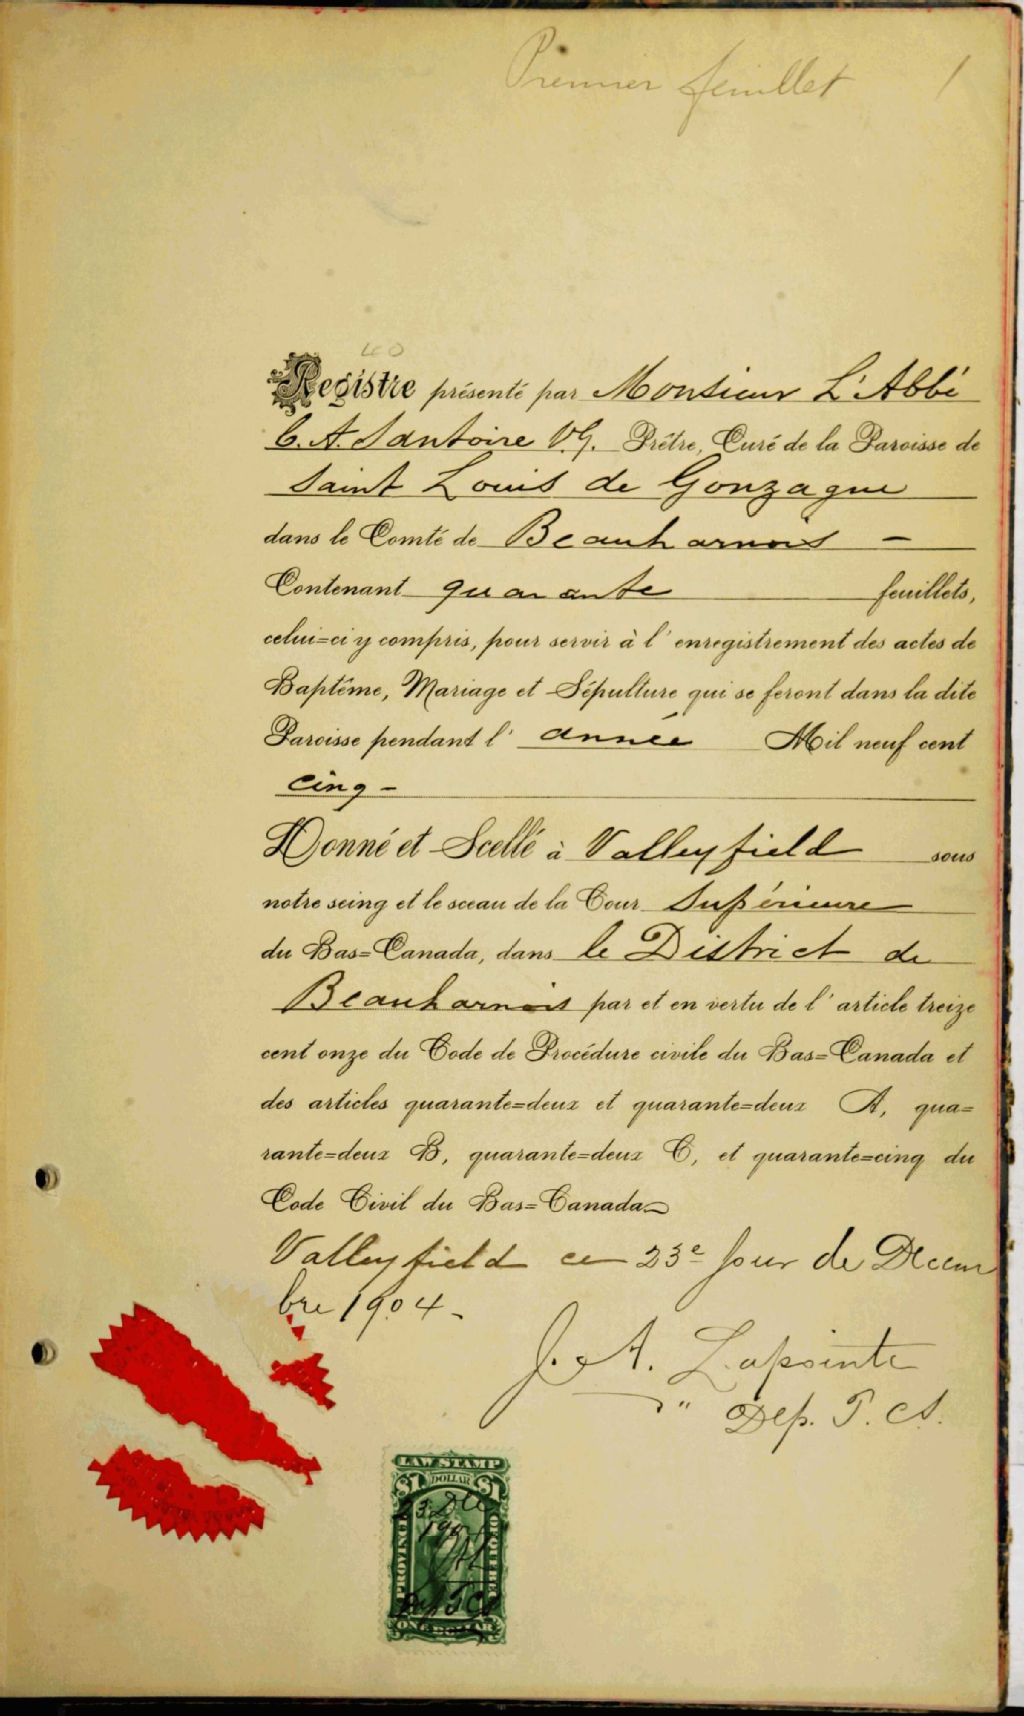 Premier feuillet 1
40
Registre présenté par Monsieur L'Abbé
C. A. Santoire V.G. Prêtre, Curé de la Paroisse de
Saint Louis de Gonzague
dans le Comté de Beauharnois -
Contenant quarante feuillets,
celui=ci y compris, pour servir à l'enregistrement des actes de
Baptême, Mariage et Sépulture qui se feront dans la dite
Paroisse pendant l'année Mil neuf cent
cinq -
Donné et Scellé à Valleyfield sous
notre seing et le sceau de la Cour Supérieure
du Bas=Canada, dans le District de
Beauharnois par et en vertu de l'article treize
cent onze du Code de Procédure civile du Bas=Canada et
des articles quarante=deux et quarante=deux A, qua=
rante=deux B, quarante=deux C, et quarante=cinq du
Code Civil du Bas=Canada
Valleyfield ce 23e Jour de Décem
bre 1904 -
J. A. Lapointe
Dep. P. C. S.
LAW STAMP
$1 DOLLAR $1
PROVINCE OF QUEBEC
23 Dec
1904
JAL
Dep P C S
ONE DOLLAR